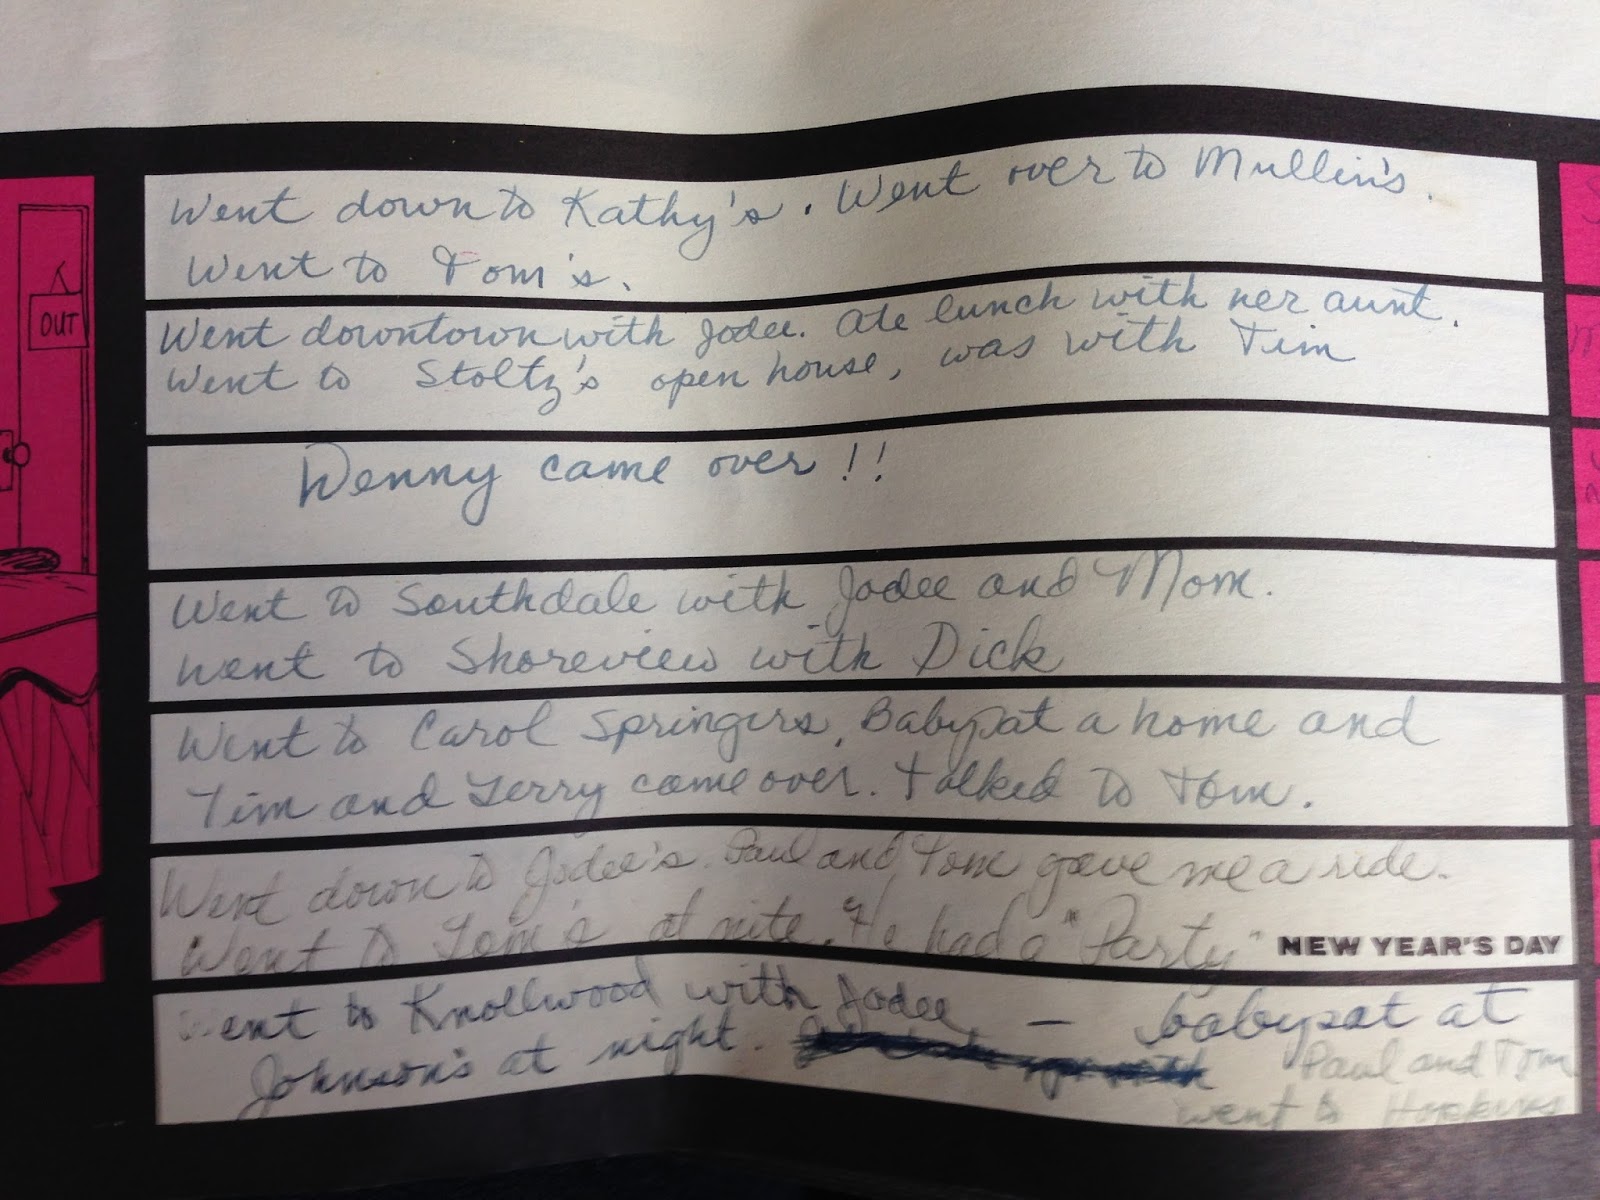 OUT
Went down to Kathy's. Went over to Mullin's.
Went to Tom's.
Went downtown with Jodee. Ate lunch with her aunt.
Went to Stoltz's open house, was with Tim
Denny came over!!
Went to Southdale with Jodee and Mom.
Went to Shoreview with Dick
Went to Carol Springers. Babysat a home and
Tim and Terry came over. Talked to Tom.
Went down to Jodee's. Paul and Tom gave me a ride.
Went to Tom's at nite. He had a "Party"
NEW YEAR'S DAY
Went to Knollwood with Jodee, — babysat at
Johnson's at night.
Paul and Tom
went to Hopkins